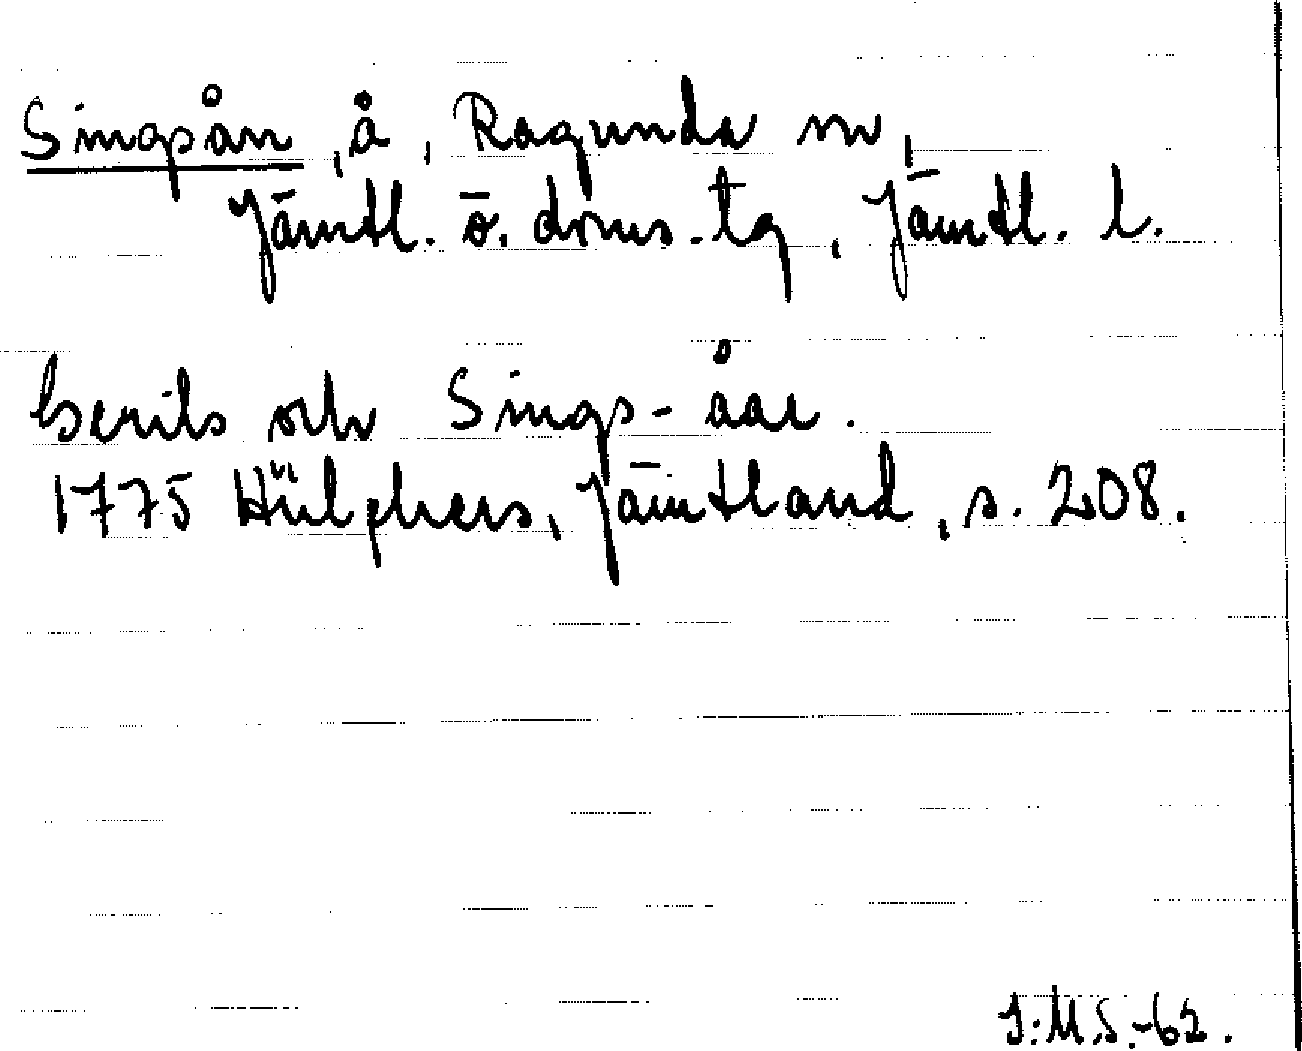 Singsån, å, Ragunda sn,
Jämtl. ö. doms.-tg, Jämtl. l.
Gerils och Sings-åar.
1775 Hülphers, Jämtland, s. 208.
J.M.S.-62.